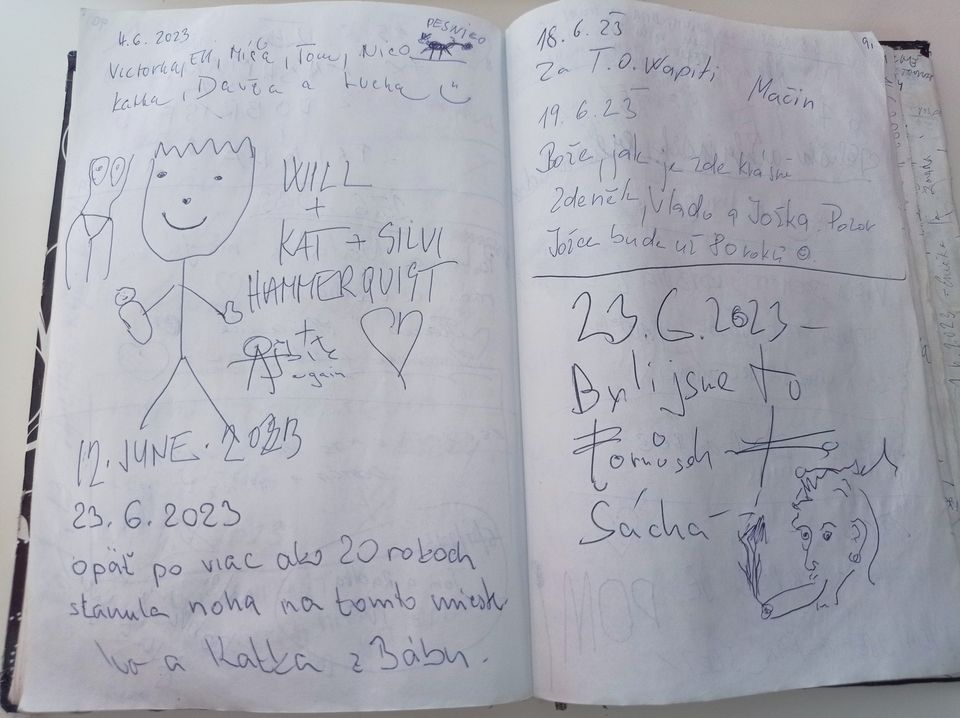 4.6. 2023
PESNICO
Victorka, Ell, Mića, Tom, Nico
Katka, Davča a Lucka
WILL
+
KAT + SILVI
HAMMERQUIST
+
again
12. JUNE. 2023
23. 6. 2023
opäť po viac ako 20 rokoch
stanula noha na tomto mieste
Ivo a Katka z Bábu.
18. 6. 23
Za T.O. Wapiti Mačin
19. 6. 23
Bože, jak je zde krásně
Zdeněk, Vlado a Joška. Pozor
Jožce bude už 80 roků
23.6.2023 -
Byli jsme to
Sácha